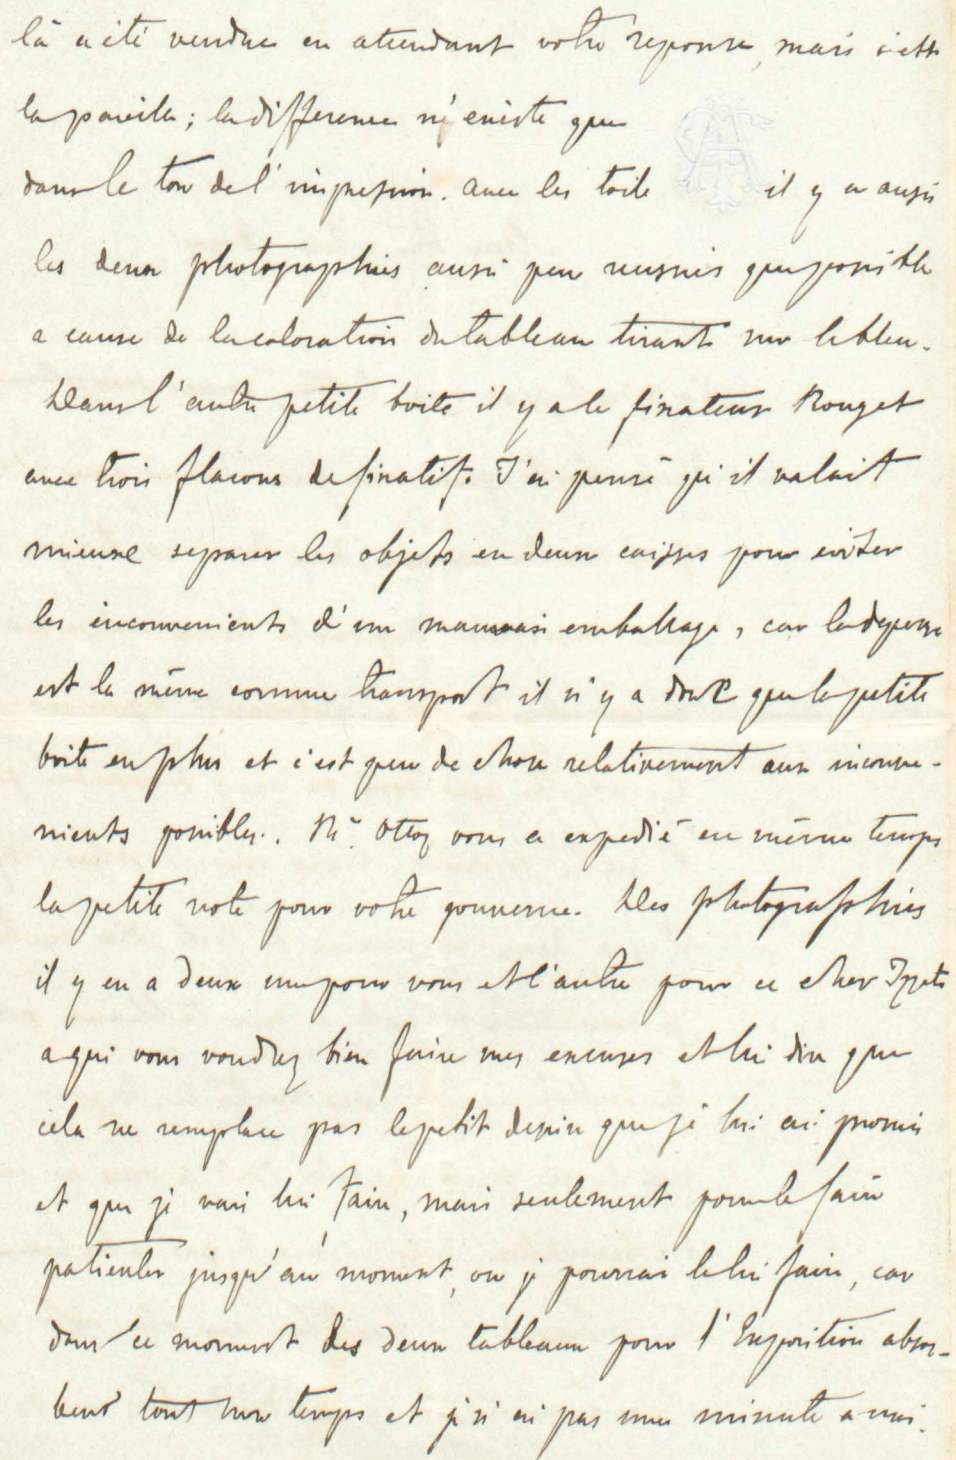 là a été vendue en attendant votre reponse, mais c'est
la pareile; la difference n'existe que
dans le ton de l'impression. Avec les toile il y a aussi
les deux photographies aussi peu reussies que possible
a cause de la coloration du tableau tirant sur le bleu.
Dans l'autre petite boite il y a le fixateur Rouget
avec trois flacons de fixatif. J'ai pensé qu'il valait
mieux separer les objets en deux caisses pour eviter
les inconvenients d'un mauvais emballage, car la depense
est la même comme transport il n'y a donc que la petite
boite en plus et c'est peu de chose relativement aux inconve-
nients possibles. Mr. Ottoz vous a expedié en même temps
la petite note pour votre gouverne. Des photographies
il y en a deux une pour vous et l'autre pour ce cher Izzet
a qui vous voudrez bien faire mes excuses et lui dire que
cela ne remplace pas le petit dessin que je lui ai promis
et que je vais lui faire, mais seulement pour le faire
patienter jusqu'au moment, ou je pourrai le lui faire, car
dans ce moment les deux tableaux pour l'Exposition absor-
bent tout mon temps et je n'ai pas une minute a moi.